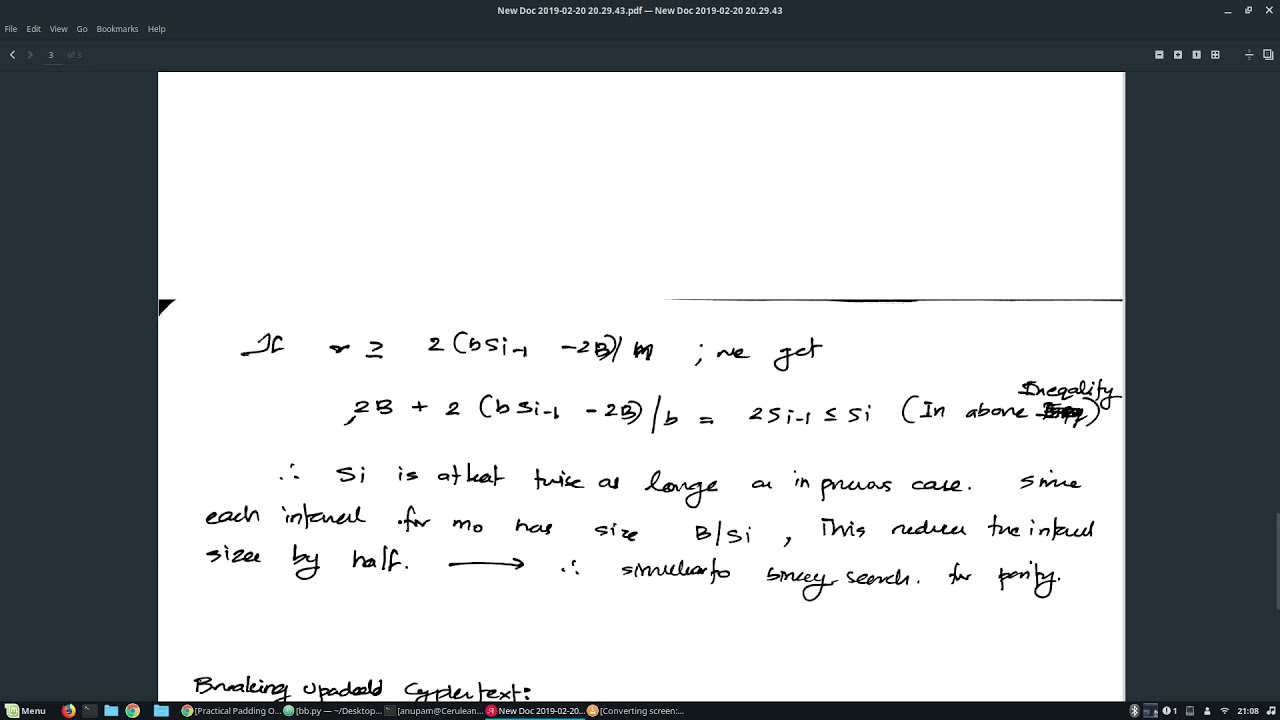 New Doc 2019-02-20 20.29.43.pdf — New Doc 2019-02-20 20.29.43
File Edit View Go Bookmarks Help
3 of 3
If r ≥ 2 (bSi-1 -2B)/n ; we get
2B + 2 (bSi-1 -2B)/b = 2Si-1 ≤ Si (In above Ineqality)
∴ Si is atleat twice as longe as in prevous case. Since
each interval for m0 has size B/Si , This reduces the interval
sizee by half. → ∴ similar to binary search. for parity.
Breaking upadded Cyphertext:
Menu [Practical Padding O... [bb.py — ~/Desktop... [anupam@Cerulean... New Doc 2019-02-20... [Converting screen:... 1 21:08